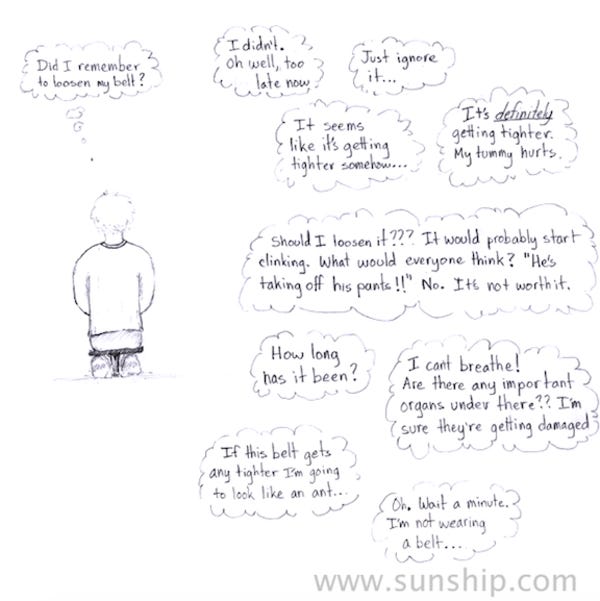 Did I remember
to loosen my belt?
I didn't.
Oh well, too
late now
Just ignore
it...
It seems
like it's getting
tighter somehow...
It's definitely
getting tighter.
My tummy hurts.
Should I loosen it??? It would probably start
clinking. What would everyone think? "He's
taking off his pants!!" No. It's not worth it.
How long
has it been?
I cant breathe!
Are there any important
organs under there?? I'm
sure they're getting damaged
If this belt gets
any tighter I'm going
to look like an ant...
Oh. Wait a minute.
I'm not wearing
a belt...
www.sunship.com